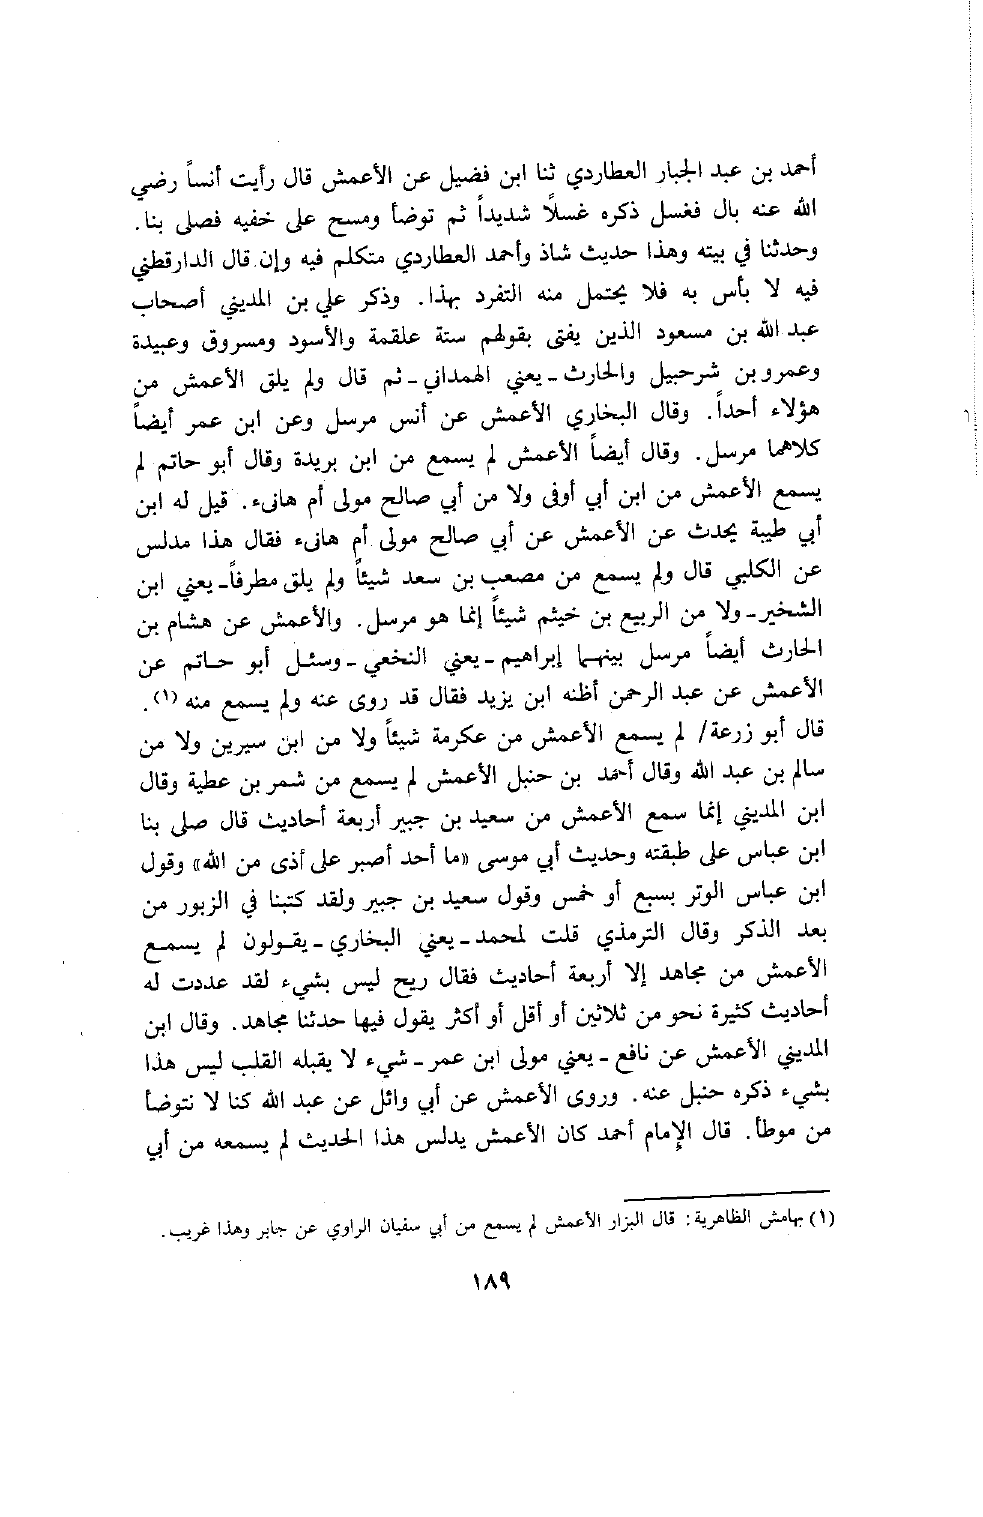 أحمد بن عبد الجبار العطاردي ثنا ابن فضيل عن الأعمش قال رأيت أنساً رضي
الله عنه بال فغسل ذكره غسلًا شديداً ثم توضأ ومسح على خفيه فصلى بنا.
وحدثنا في بيته وهذا حديث شاذ وأحمد العطاردي متكلم فيه وإن قال الدارقطني
فيه لا بأس به فلا يحتمل منه التفرد بهذا. وذكر علي بن المديني أصحاب
عبد الله بن مسعود الذين يفتى بقولهم ستة علقمة والأسود ومسروق وعبيدة
وعمرو بن شرحبيل والحارث ـ يعني الهمداني ـ ثم قال ولم يلق الأعمش من
هؤلاء أحداً. وقال البخاري الأعمش عن أنس مرسل وعن ابن عمر أيضاً
كلاهما مرسل. وقال أيضاً الأعمش لم يسمع من ابن بريدة وقال أبو حاتم لم
يسمع الأعمش من ابن أبي أوفى ولا من أبي صالح مولى أم هانىء. قيل له ابن
أبي طيبة يحدث عن الأعمش عن أبي صالح مولى أم هانىء فقال هذا مدلس
عن الكلبي قال ولم يسمع من مصعب بن سعد شيئاً ولم يلق مطرفاً ـ يعني ابن
الشخير ـ ولا من الربيع بن خيثم شيئاً إنما هو مرسل. والأعمش عن هشام بن
الحارث أيضاً مرسل بينهما إبراهيم ـ يعني النخعي ـ وسئل أبو حاتم عن
الأعمش عن عبد الرحمن أظنه ابن يزيد فقال قد روى عنه ولم يسمع منه (١).
قال أبو زرعة/ لم يسمع الأعمش من عكرمة شيئاً ولا من ابن سيرين ولا من
سالم بن عبد الله وقال أحمد بن حنبل الأعمش لم يسمع من شمر بن عطية وقال
ابن المديني إنما سمع الأعمش من سعيد بن جبير أربعة أحاديث قال صلى بنا
ابن عباس على طبقته وحديث أبي موسى «ما أحد أصبر على أذى من الله» وقول
ابن عباس الوتر بسبع أو خمس وقول سعيد بن جبير ولقد كتبنا في الزبور من
بعد الذكر وقال الترمذي قلت لمحمد ـ يعني البخاري ـ يقولون لم يسمع
الأعمش من مجاهد إلا أربعة أحاديث فقال ريح ليس بشيء لقد عددت له
أحاديث كثيرة نحو من ثلاثين أو أقل أو أكثر يقول فيها حدثنا مجاهد. وقال ابن
المديني الأعمش عن نافع ـ يعني مولى ابن عمر ـ شيء لا يقبله القلب ليس هذا
بشيء ذكره حنبل عنه. وروى الأعمش عن أبي وائل عن عبد الله كنا لا نتوضأ
من موطأ. قال الإمام أحمد كان الأعمش يدلس هذا الحديث لم يسمعه من أبي
(١) بهامش الظاهرية: قال البزار الأعمش لم يسمع من أبي سفيان الراوي عن جابر وهذا غريب.
١٨٩